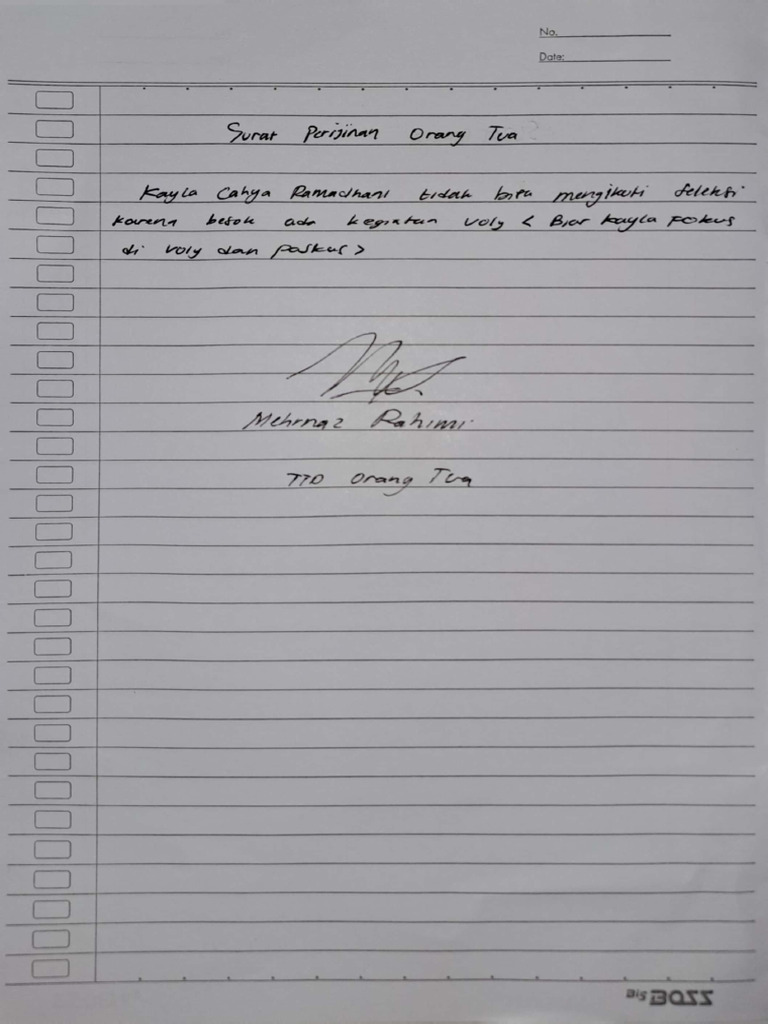 No.
Date:
Surat Perijinan Orang Tua
Kayla Cahya Ramadhani tidak bisa mengikuti seleksi
karena besok ada kegiatan voly < Biar kayla fokus
di voly dan paskus >
Mehrnaz Rahimi
TTD Orang Tua
Big BOSS